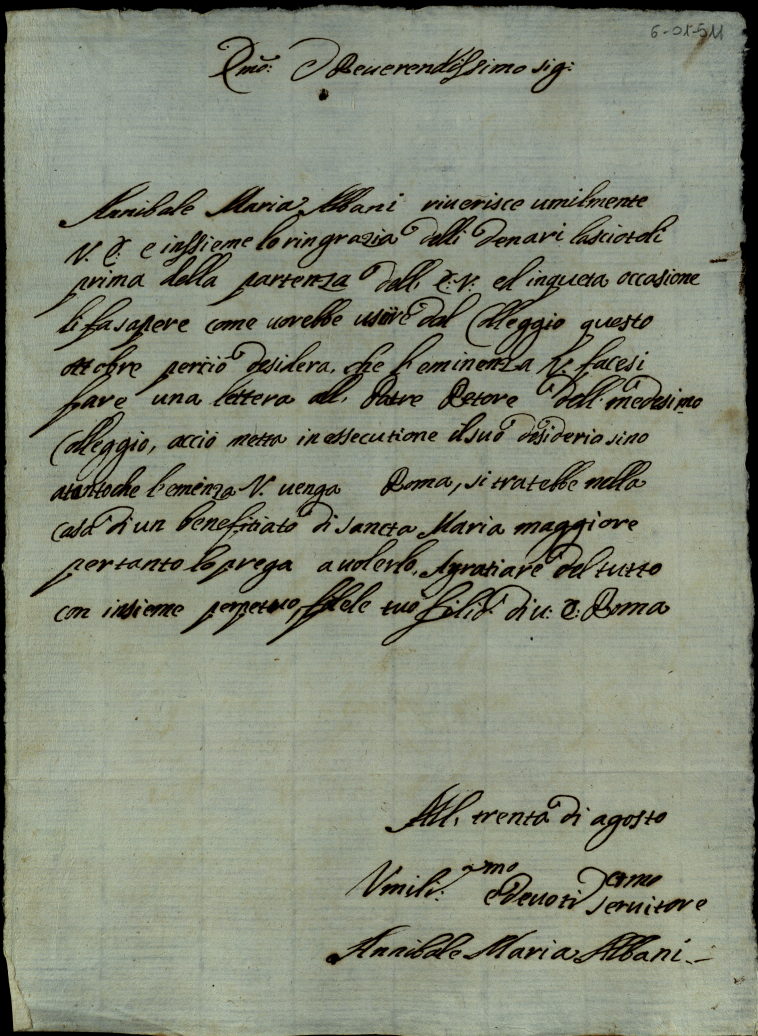 6-01-511
E.mo: e Reverendissimo sig:
Annibale Maria Albani riverisce umilmente
V. E: e inssieme lo ringrazia delli denari lasciotoli
prima della partenza dell, E: V: ed inqueta occasione
li fa sapere come vorebbe usiire dal Colleggio questo
ottobre perciò desidera, che l'eminenza V. facesi
fare una lettera all, Patre Retore dell' medesimo
Colleggio, acciò metta in essecutione il suo desiderio sino
atantoche l'emenza V. venga Roma, si tratebbe nella
casa di un benefitiato di sancta Maria maggiore
pertanto lo prega a volerlo, agratiare del tutto
con insieme perpetuo, di v: E: Roma
All, trenta di agosto
Vmili:mo e devoti servitore
Annibale Maria Albani